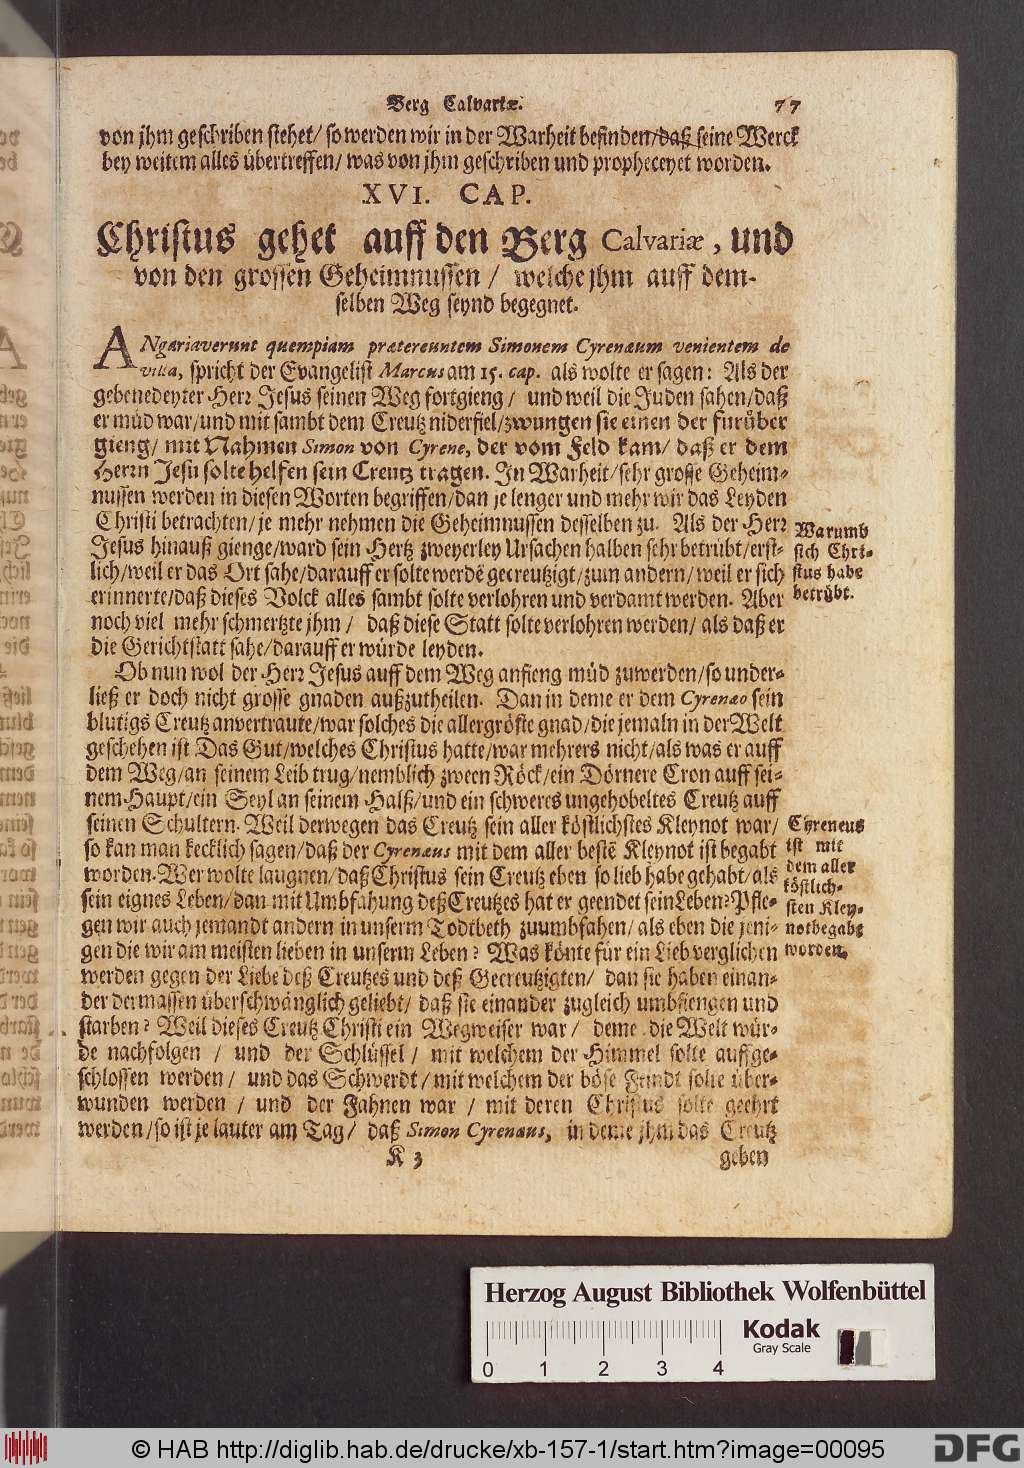 Berg Calvariæ. 77
von jhm geschriben stehet/ so werden wir in der Warheit befinden/daß seine Werck
bey weitem alles übertreffen/ was von jhm geschriben und propheceyet worden.
XVI. CAP.
Christus gehet auff den Berg Calvariæ, und
von den grossen Geheimnussen / welche jhm auff dem-
selben Weg seynd begegnet.
ANgariaverunt quempiam prætereuntem Simonem Cyrenæum venientem de
villa, spricht der Evangelist Marcus am 15. cap. als wolte er sagen: Als der
gebenedeyter Herr Jesus seinen Weg fortgieng / und weil die Juden sahen/daß
er müd war/und mit sambt dem Creutz niderfiel/zwungen sie einen der fürüber
gieng/ mit Nahmen Simon von Cyrene, der vom Feld kam/ daß er dem
Herrn Jesu solte helfen sein Creutz tragen. In Warheit/sehr grosse Geheim-
nussen werden in diesen Worten begriffen/dan je lenger und mehr wir das Leyden
Christi betrachten/je mehr nehmen die Geheimnussen desselben zu. Als der Herr
Jesus hinauß gienge/ward sein Hertz zweyerley Ursachen halben sehr betrübt/erst-
lich/weil er das Ort sahe/darauff er solte werdē gecreutzigt/zum andern/weil er sich
erinnerte/daß dieses Volck alles sambt solte verlohren und verdamt werden. Aber
noch viel mehr schmertzte jhm / daß diese Statt solte verlohren werden/ als daß er
die Gerichtstatt sahe/darauff er würde leyden.
Warumb
sich Chri-
stus habe
betrübt.
Ob nun wol der Herr Jesus auff dem Weg anfieng müd zuwerden/so under-
ließ er doch nicht grosse gnaden außzutheilen. Dan in deme er dem Cyrenæo sein
blutigs Creutz anvertraute/war solches die allergröste gnad/die jemaln in der Welt
geschehen ist. Das Gut/welches Christus hatte/war mehrers nicht/als was er auff
dem Weg/an seinem Leib trug/nemblich zween Röck/ein Dörnere Cron auff sei-
nem Haupt/ein Seyl an seinem Halß/und ein schweres ungehobeltes Creutz auff
seinen Schultern. Weil derwegen das Creutz sein aller köstlichstes Kleynot war/
so kan man kecklich sagen/daß der Cyrenæus mit dem aller bestē Kleynot ist begabt
worden. Wer wolte laugnen/daß Christus sein Creutz eben so lieb habe gehabt/als
sein eignes Leben/dan mit Umbfahung deß Creutzes hat er geendet sein Leben? Pfle-
gen wir auch jemandt andern in unserm Todtbeth zuumbfahen/als eben die jeni-
gen die wir am meisten lieben in unserm Leben? Was könte für ein Lieb verglichen
werden gegen der Liebe deß Creutzes und deß Gecreutzigten/ dan sie haben einan-
der dermassen überschwänglich geliebt/ daß sie einander zugleich umbfiengen und
starben? Weil dieses Creutz Christi ein Wegweiser war / deme die Welt wür-
de nachfolgen / und der Schlüssel / mit welchem der Himmel solte auffge-
schlossen werden / und das Schwerdt / mit welchem der böse Feindt solte über-
wunden werden / und der Fahnen war / mit deren Christus solte geehrt
werden/so ist je lauter am Tag/ daß Simon Cyrenæus, in deme jhm das Creutz
Cyreneus
ist mit
dem aller
köstlich-
sten Kley-
not begabt
worden.
K 3 geben
Herzog August Bibliothek Wolfenbüttel
Kodak
Gray Scale
0 1 2 3 4
© HAB http://diglib.hab.de/drucke/xb-157-1/start.htm?image=00095
DFG